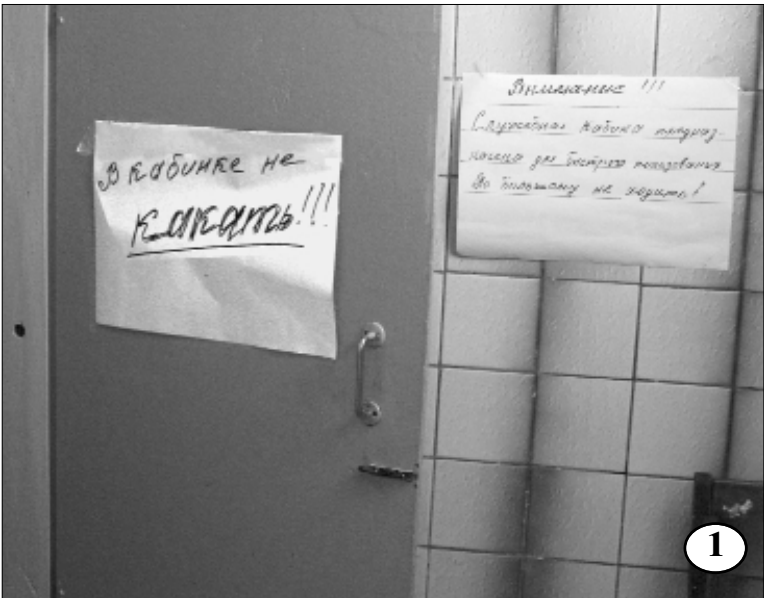 В кабинке не
какать!!!
Внимание !!!
Служебная кабина предназ-
начена для быстрого пользования
По большому не ходить!
1